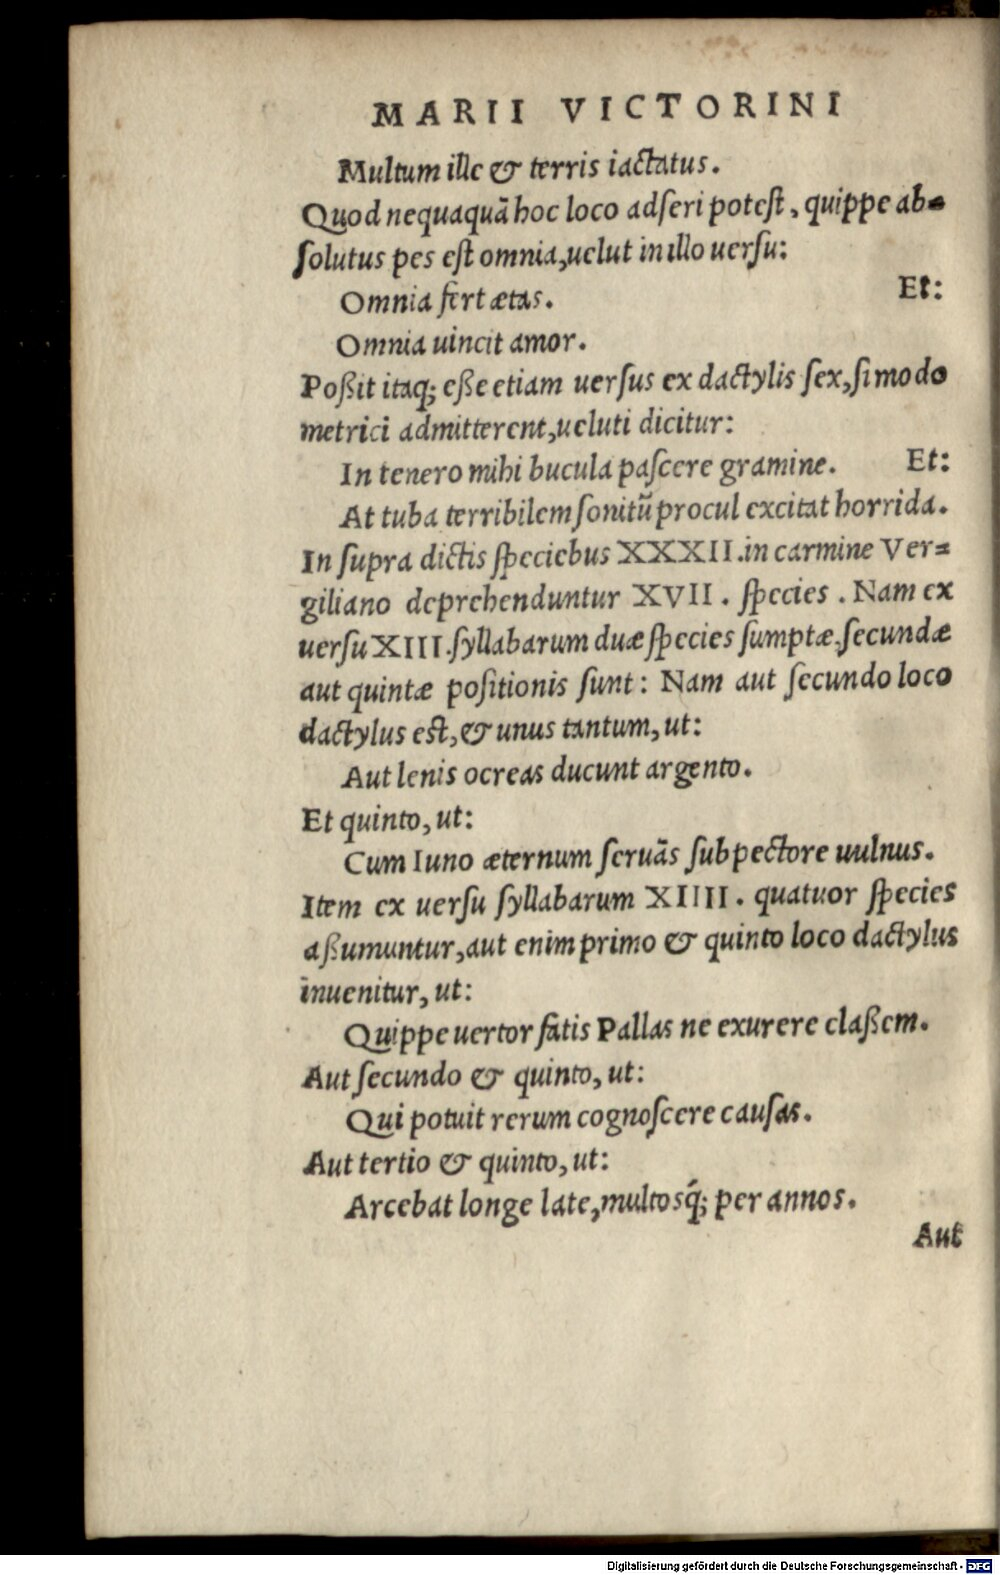 MARII VICTORINI
Multum ille & terris iactatus.
Quod nequaquā hoc loco adſeri poteſt, quippe ab-
ſolutus pes eſt omnia, uelut in illo uerſu:
Omnia fert ætas. Et:
Omnia uincit amor.
Poßit itaq; eße etiam uerſus ex dactylis ſex, ſi modo
metrici admitterent, ueluti dicitur:
In tenero mihi bucula paſcere gramine. Et:
At tuba terribilem ſonitū procul excitat horrida.
In ſupra dictis ſpeciebus XXXII. in carmine Ver=
giliano deprehenduntur XVII. ſpecies. Nam ex
uerſu XIII. ſyllabarum duæ ſpecies ſumptæ, ſecundæ
aut quintæ poſitionis ſunt: Nam aut ſecundo loco
dactylus eſt, & unus tantum, ut:
Aut lenis ocreas ducunt argento.
Et quinto, ut:
Cum Iuno æternum ſeruās ſub pectore uulnus.
Item ex uerſu ſyllabarum XIIII. quatuor ſpecies
aßumuntur, aut enim primo & quinto loco dactylus
inuenitur, ut:
Quippe uertor fatis Pallas ne exurere claßem.
Aut ſecundo & quinto, ut:
Qui potuit rerum cognoſcere cauſas.
Aut tertio & quinto, ut:
Arcebat longe late, multosq́; per annos.
Aut
Digitalisierung gefördert durch die Deutsche Forschungsgemeinschaft - DFG